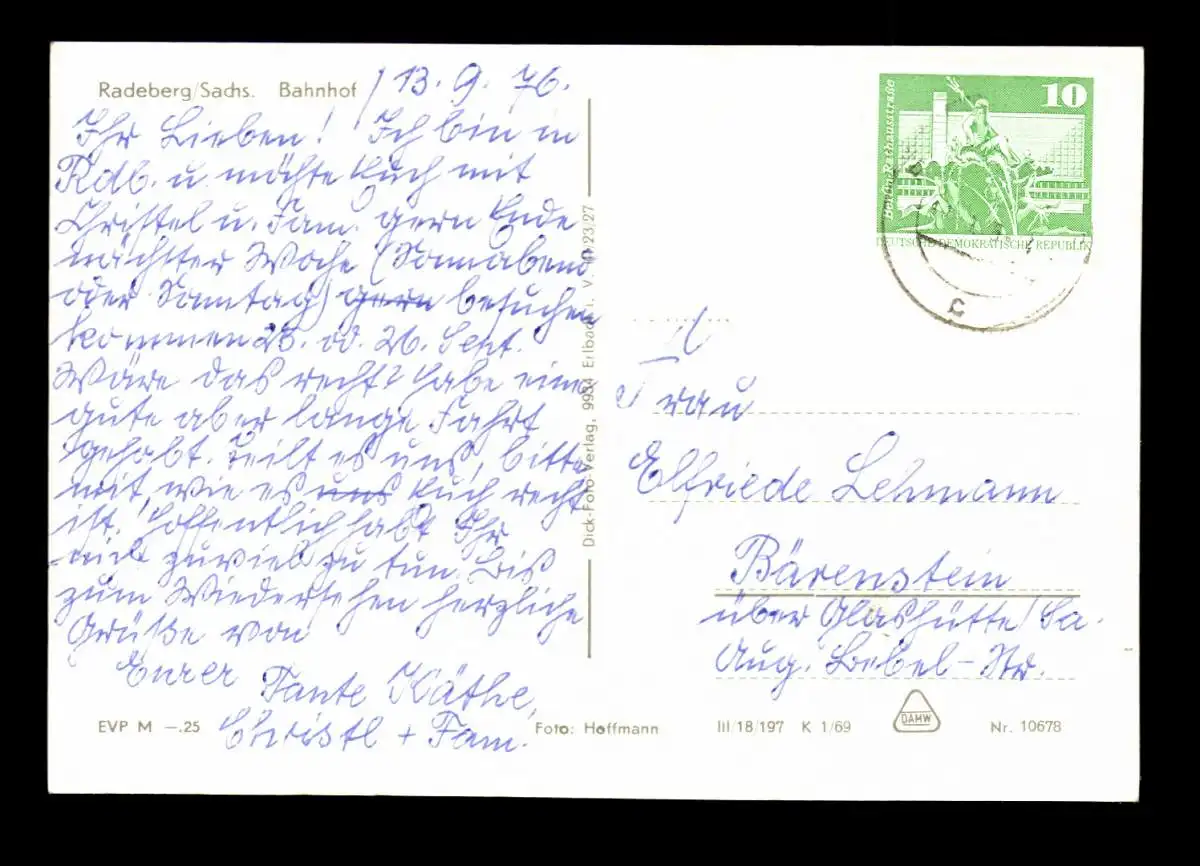 Radeberg/Sachs. Bahnhof / 13. 9. 76.
Ihr Lieben! Ich bin in
Rdb. u. möchte Euch mit
Christel u. Fam. gern Ende
nächster Woche (Sonnabend
oder Sonntag) gern besuchen
kommen 25. od. 26. Sept.
Wäre das recht? Habe eine
gute aber lange Fahrt
gehabt. Teilt es uns, bitte
mit, wie es uns Euch recht
ist. Hoffentlich habt Ihr
nicht zuviel zu tun. Bis
zum Wiedersehen herzliche
Grüße von
Eurer Tante Käthe,
Christl + Fam.
EVP M –.25
Foto: Hoffmann
Dick-Foto-Verlag, 9934 Erlbach i. V. 10/23/27
10
Berlin, Rathausstraße
DEUTSCHE DEMOKRATISCHE REPUBLIK
c
Frau
Elfriede Lehmann
Bärenstein
über Glashütte/Sa.
Aug. Bebel-Str.
III/18/197 K 1/69
DAMW
Nr. 10678